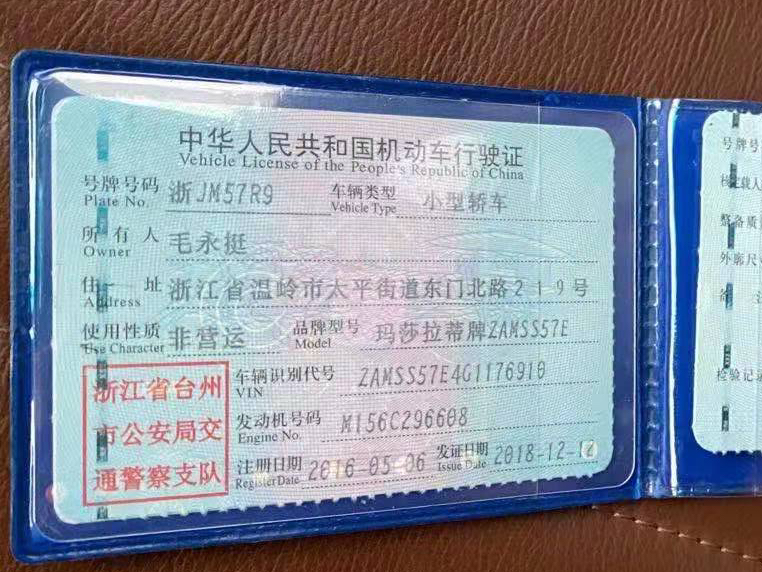 中华人民共和国机动车行驶证
Vehicle License of the People's Republic of China
号牌号码 浙JM57R9 车辆类型 小型轿车
Plate No. Vehicle Type
所有人 毛永挺
Owner
住址 浙江省温岭市太平街道东门北路219号
Address
使用性质 非营运 品牌型号 玛莎拉蒂牌ZAMSS57E
Use Character Model
浙江省台州
市公安局交
通警察支队
车辆识别代号 ZAMSS57E4G1176910
VIN
发动机号码 M156C296608
Engine No.
注册日期 2016-05-06 发证日期 2018-12-12
Register Date Issue Date
号牌号
整备质
外廓尺
检验记录